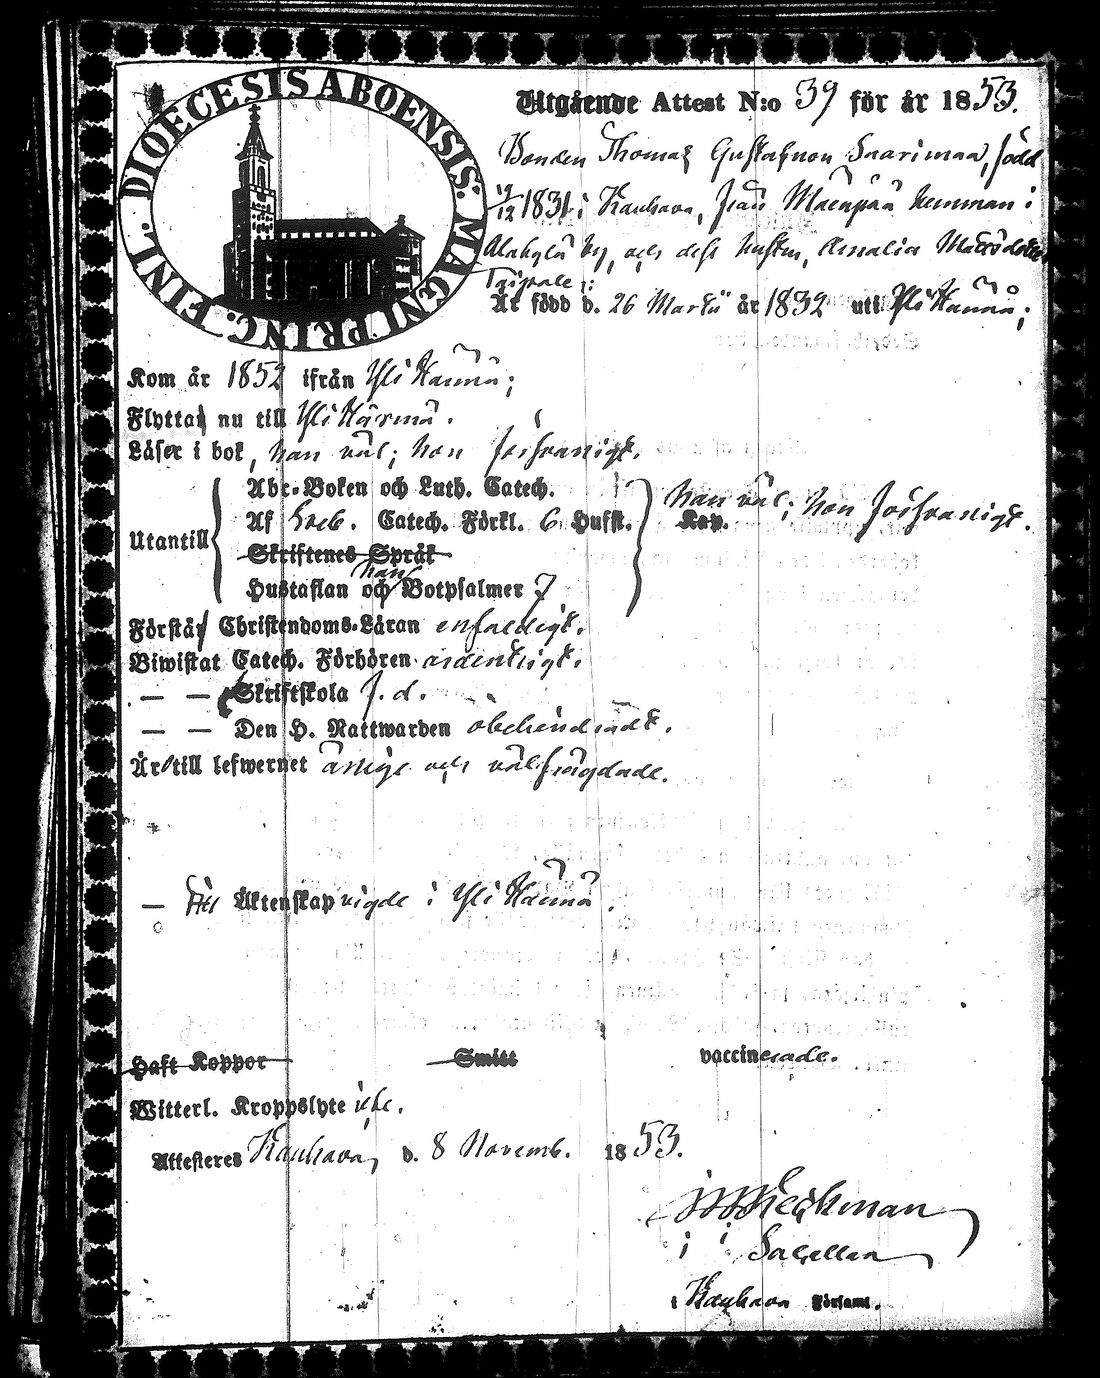 DIOECESIS ABOENSIS. MAGNI PRINC. FINL.
Utgående Attest N:o 39 för år 1853.
Bonden Thomas Gustafsson Saarimaa, född
19/12 1831 i Kauhava, från Mäenpää hemman i
Alakylä by, och dess hustru, Amalia Mattsdotter
Taipale:
Är född d. 26 Martii år 1832 uti Yli Härmä;
Kom år 1852 ifrån Yli Härmä;
Flytta nu till Yli Härmä.
Läser i bok, han väl; hon försvarligt.
Abc-Boken och Luth. Catech.
Utantill Af Sveb. Catech. Förkl. 6 Hufst. Kap. han väl; hon försvarligt.
Skriftenes Språk
han
Hustaflan och Botpsalmer 7
Förstår Christendoms-Läran enfaldigt.
Biwistat Catech. Förhören ordentligt.
— — Skriftskola f. d.
— — Den H. Nattwarden obehindradt.
Är till lefwernet ärlige och välfrägdade.
— Till Äktenskap vigde i Yli Härmä.
Haft Koppor Smitt vaccinerade.
Witterl. Kroppslyte icke.
Attesteres Kauhava, d. 8 Novemb. 1853.
Sacellan
i Kauhava Församl.